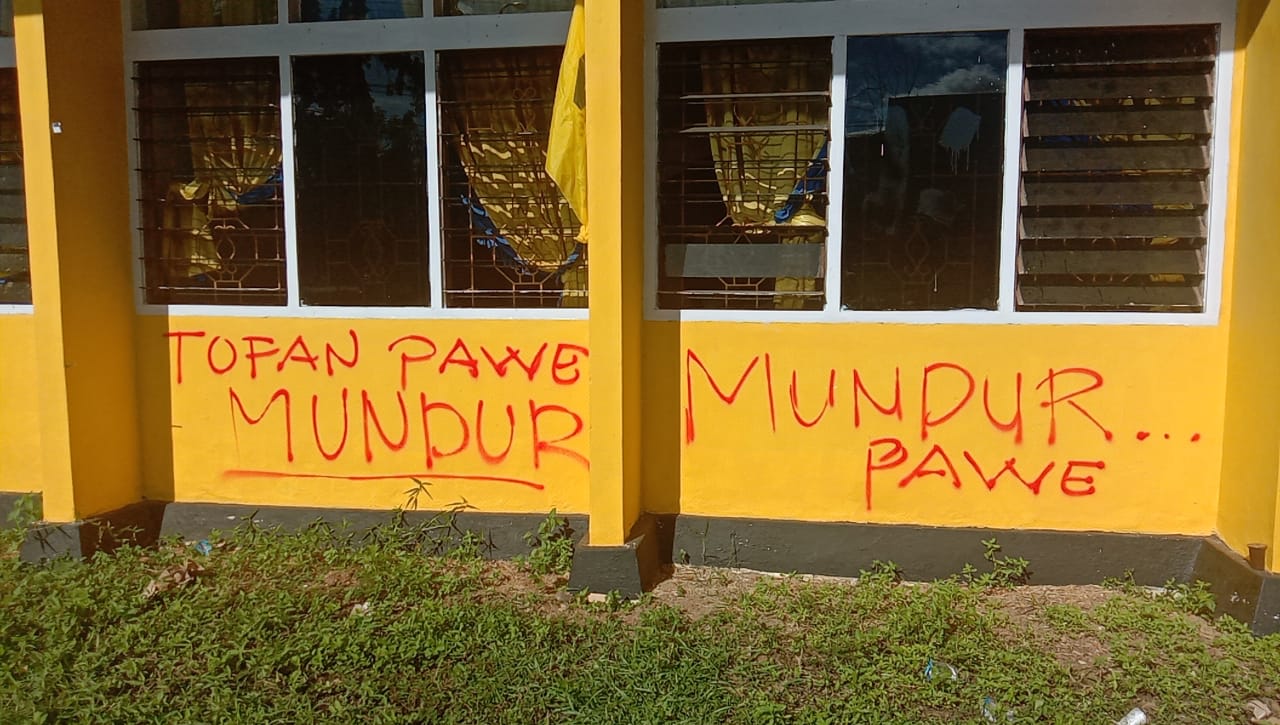 TOFAN PAWE
MUNDUR
MUNDUR...
PAWE